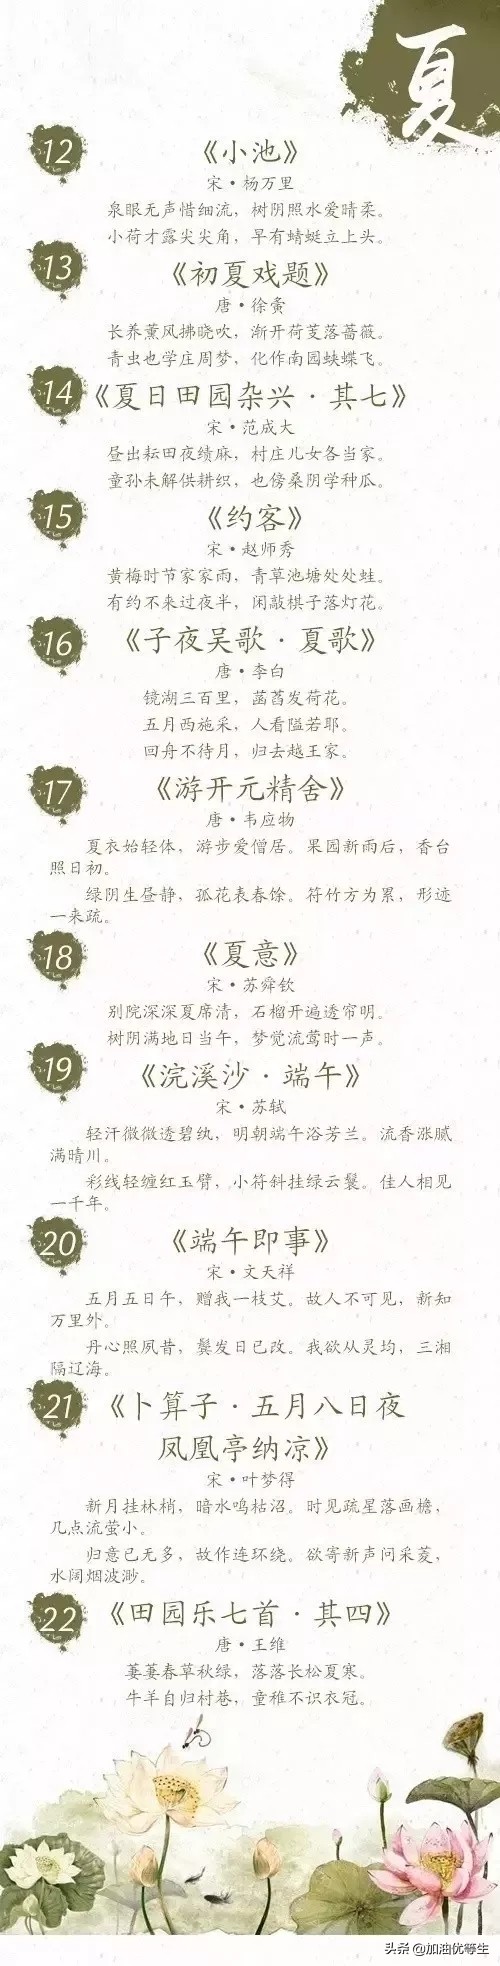 夏
12
《小池》
宋·杨万里
泉眼无声惜细流，树阴照水爱晴柔。
小荷才露尖尖角，早有蜻蜓立上头。
13
《初夏戏题》
唐·徐夤
长养薰风拂晓吹，渐开荷芰落蔷薇。
青虫也学庄周梦，化作南园蛱蝶飞。
14
《夏日田园杂兴·其七》
宋·范成大
昼出耘田夜绩麻，村庄儿女各当家。
童孙未解供耕织，也傍桑阴学种瓜。
15
《约客》
宋·赵师秀
黄梅时节家家雨，青草池塘处处蛙。
有约不来过夜半，闲敲棋子落灯花。
16
《子夜吴歌·夏歌》
唐·李白
镜湖三百里，菡萏发荷花。
五月西施采，人看隘若耶。
回舟不待月，归去越王家。
17
《游开元精舍》
唐·韦应物
夏衣始轻体，游步爱僧居。果园新雨后，香台
照日初。
绿阴生昼静，孤花表春馀。符竹方为累，形迹
一来疏。
18
《夏意》
宋·苏舜钦
别院深深夏席清，石榴开遍透帘明。
树阴满地日当午，梦觉流莺时一声。
19
《浣溪沙·端午》
宋·苏轼
轻汗微微透碧纨，明朝端午浴芳兰。流香涨腻
满晴川。
彩线轻缠红玉臂，小符斜挂绿云鬟。佳人相见
一千年。
20
《端午即事》
宋·文天祥
五月五日午，赠我一枝艾。故人不可见，新知
万里外。
丹心照夙昔，鬓发日已改。我欲从灵均，三湘
隔辽海。
21
《卜算子·五月八日夜
凤凰亭纳凉》
宋·叶梦得
新月挂林梢，暗水鸣枯沼。时见疏星落画檐，
几点流萤小。
归意已无多，故作连环绕。欲寄新声问采菱，
水阔烟波渺。
22
《田园乐七首·其四》
唐·王维
萋萋春草秋绿，落落长松夏寒。
牛羊自归村巷，童稚不识衣冠。
头条 @加油优等生